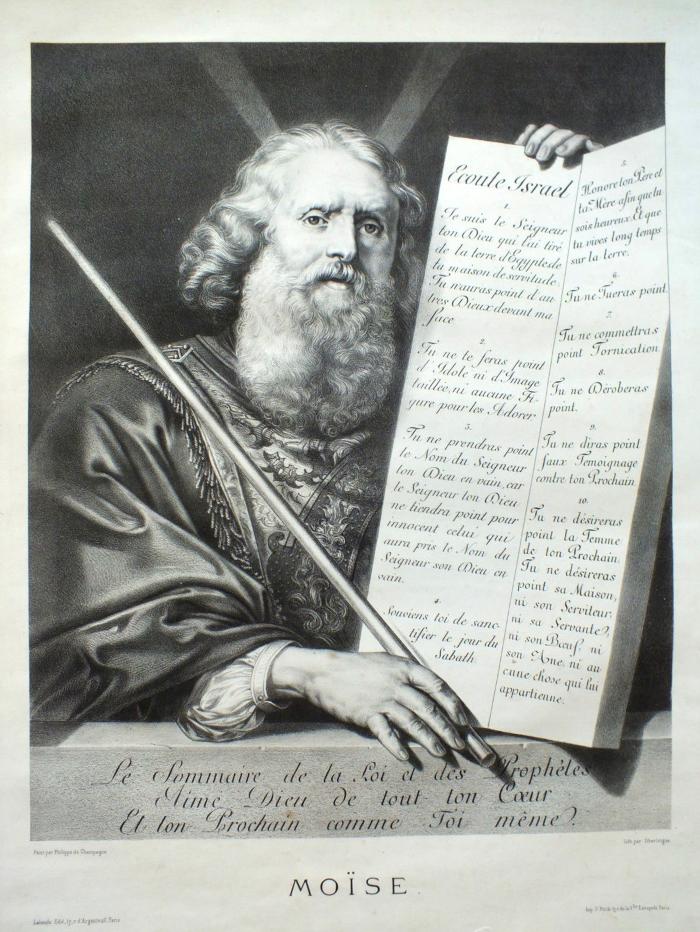 Ecoute Israel
1.
Je suis le Seigneur
ton Dieu qui t'ai tiré
de la terre d'Egypte de
la maison de servitude.
Tu n'auras point d'au
tres Dieux devant ma
face
2.
Tu ne te feras point
d'Idole ni d'Image
taillée, ni aucune Fi-
gure pour les Adorer.
3.
Tu ne prendras point
le Nom du Seigneur
ton Dieu en vain, car
le Seigneur ton Dieu
ne tiendra point pour
innocent celui qui
aura pris le Nom du
Seigneur son Dieu en
vain.
4.
Souviens toi de sanc-
tifier le jour du
Sabath
5.
Honore ton Père et
ta Mère afin que tu
sois heureux. Et que
tu vives long temps
sur la terre.
6.
Tu ne Tueras point.
7.
Tu ne commettras
point Fornication
8.
Tu ne Déroberas
point.
9.
Tu ne diras point
faux Temoignage
contre ton Prochain
10.
Tu ne désireras
point la Femme
de ton Prochain.
Tu ne désireras
point sa Maison,
ni son Serviteur,
ni sa Servante,
ni son Bœuf, ni
son Ane, ni au
cune chose qui lui
appartienne.
Le Sommaire de la Loi et des Prophêtes
Aime Dieu de tout ton Cœur
Et ton Prochain comme Toi même.
Peint par Philippe de Champagne
Lith. par
MOÏSE.
Lalande Edit, 17, r. d'Argenteuil, Paris
Imp.
Paris